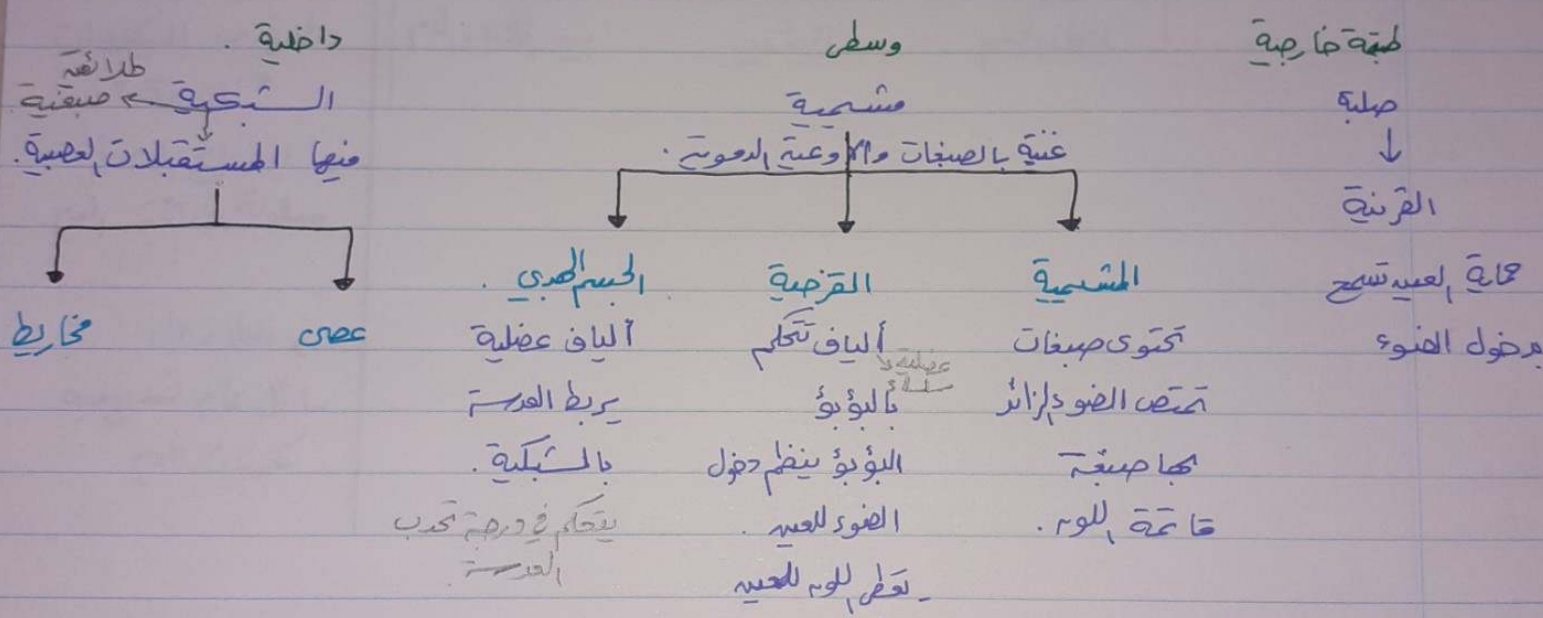 طبقة خارجية
صلبة
القرنية
حماية العين تسمح
بدخول الضوء
وسطى
مشيمية
غنية بالصبغات والأوعية الدموية.
المشيمية
تحتوى صبغات
تمتص الضوء الزائد
بها صبغة
قاتمة اللون.
القزحية
ألياف تتحكم
عضلية
بالبؤبؤ
البؤبؤ ينظم دخول
الضوء للعين.
- تعطي اللون للعين
الجسم الهدبي.
ألياف عضلية
يربط العدسة
بالشبكية.
يتحكم في درجة تحدب
العدسة.
داخلية.
الشبكية
طلائية
صبغية
فيها المستقبلات العصبية.
عصى
مخاريط